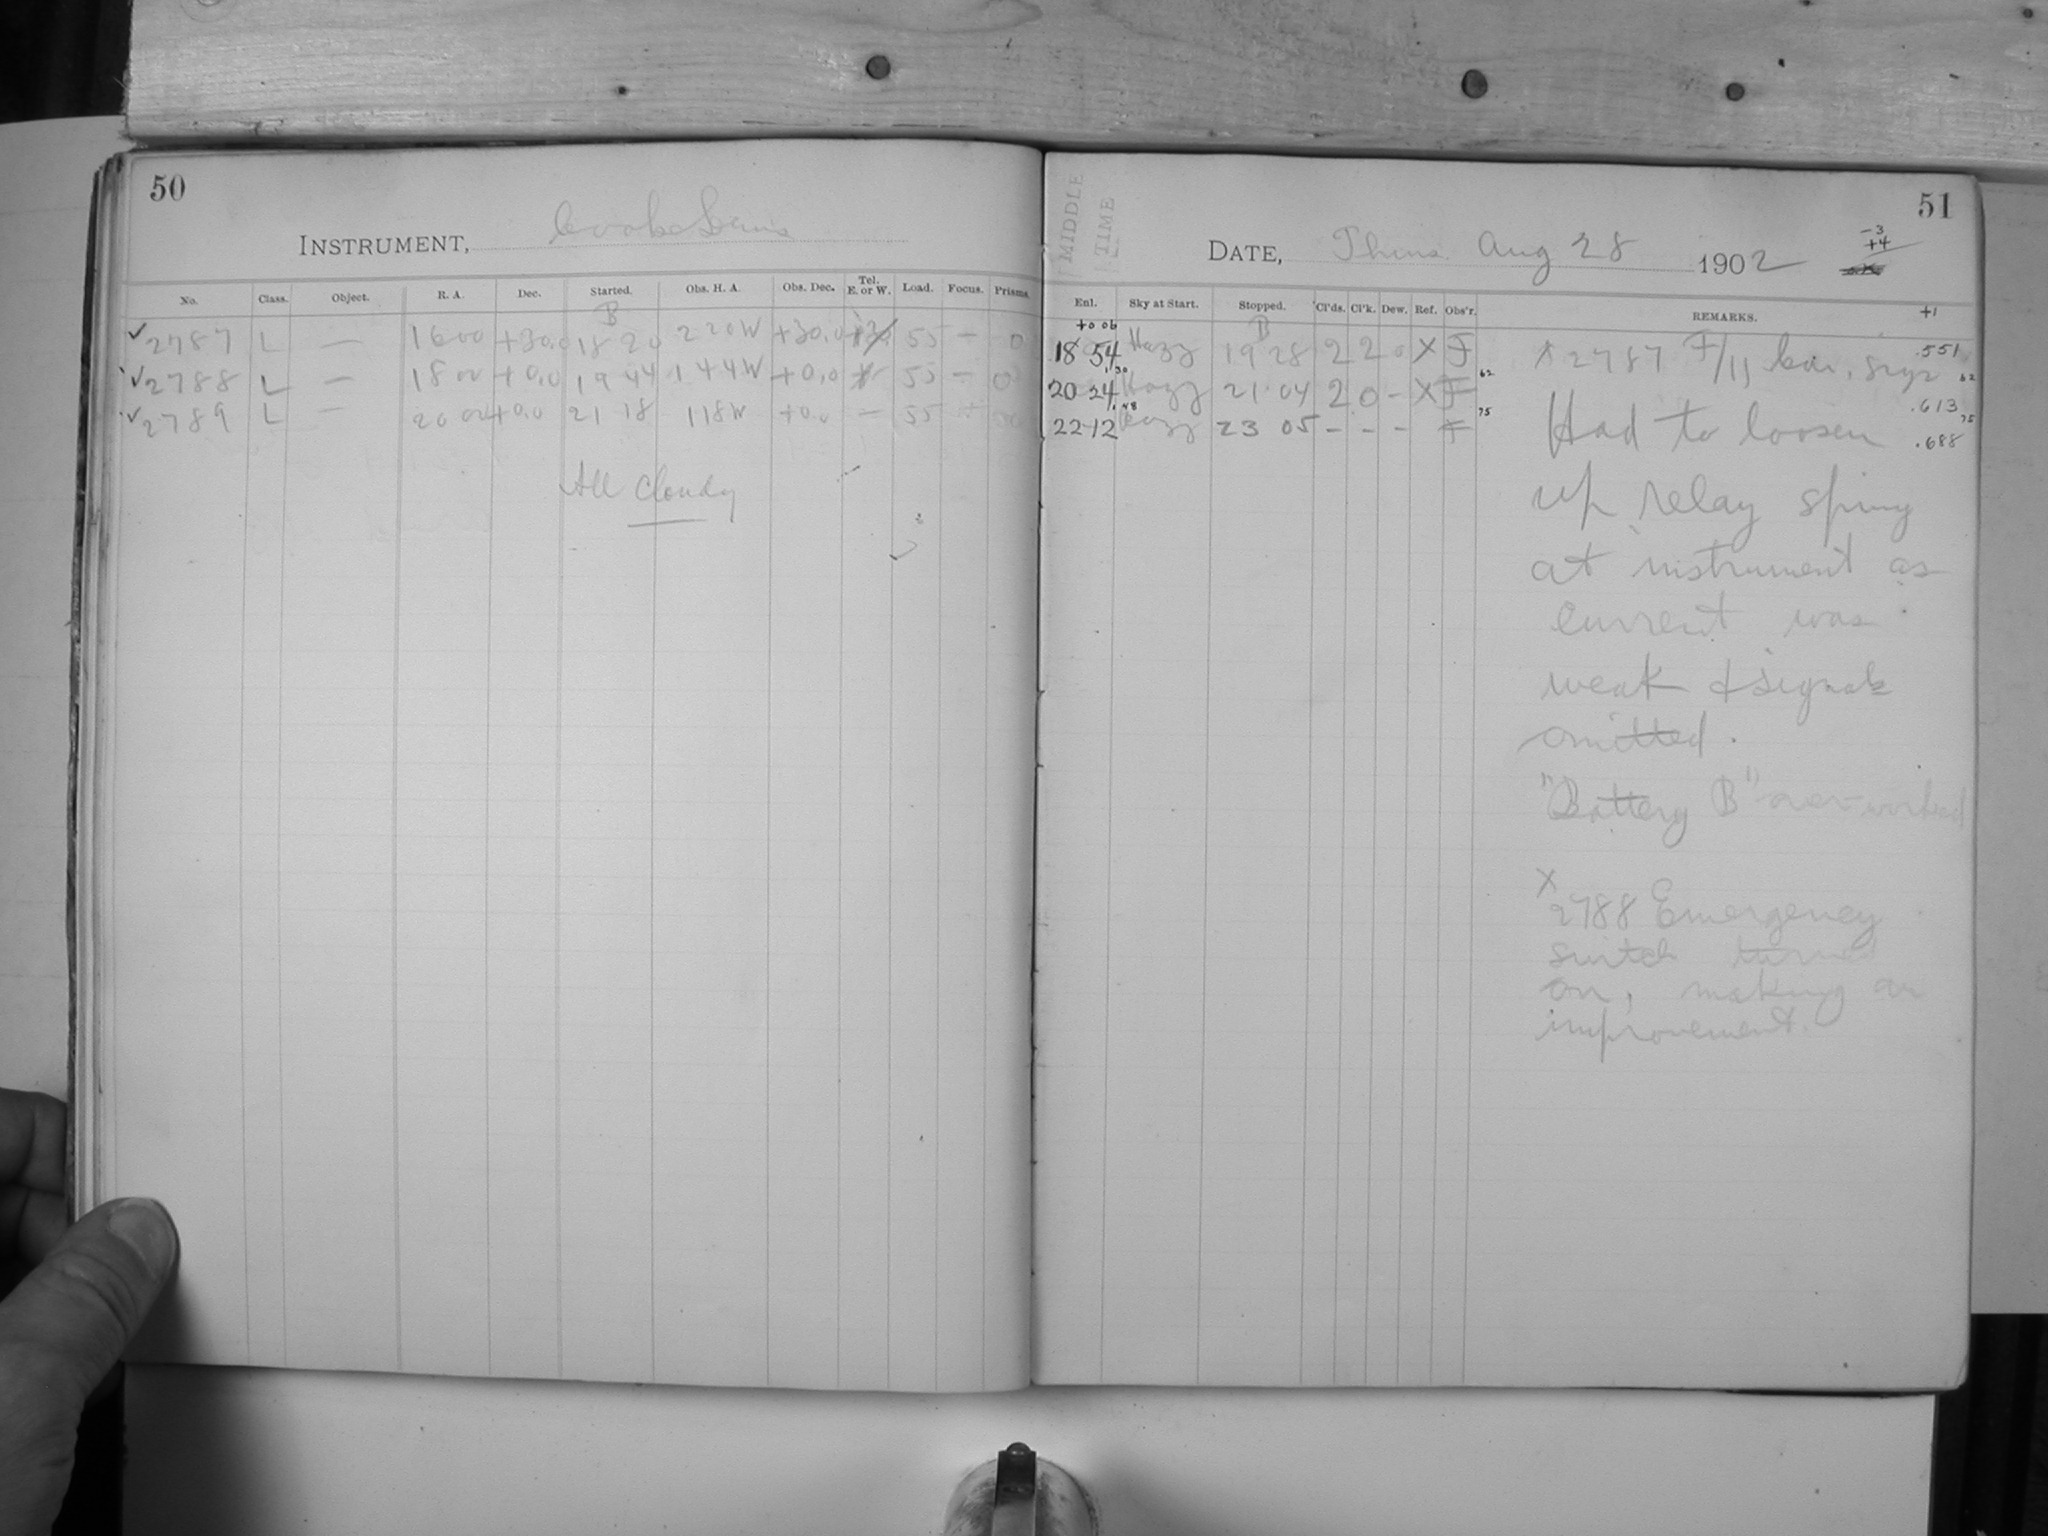 50
INSTRUMENT, Cooke Lens
No. Class. Object. R. A. Dec. Started. Obs. H. A. Obs. Dec. Tel. E. or W. Load. Focus. Prisms.
B
✓ 2787 L — 16 00 +30.0 18 20 2 20 W +30.0 55 — 0
✓ 2788 L — 18 00 +0.0 19 44 1 44 W +0.0 55 — 0
✓ 2789 L — 20 00 +0.0 21 18 1 18 W +0.0 — 55
All Cloudy
✓
MIDDLE
TIME
51
DATE, Thurs. Aug 28 1902
-3
+4
Enl. Sky at Start. Stopped. Cl'ds. Cl'k. Dew. Ref. Obs'r. REMARKS. +1
+0 06 B
18 54 Hazy 19 28 2 2 0 X F .551
1 30 62 62
20 24 Hazy 21 04 2 0 - X F .613
1 48 75 75
22 12 Hazy 23 05 - - - F .688
X 2787 F/11
Had to loosen
up relay spring
at instrument as
current was
weak & signals
omitted.
"Battery B" over-worked
X
2788 Emergency
switch turned
on, making an
improvement.